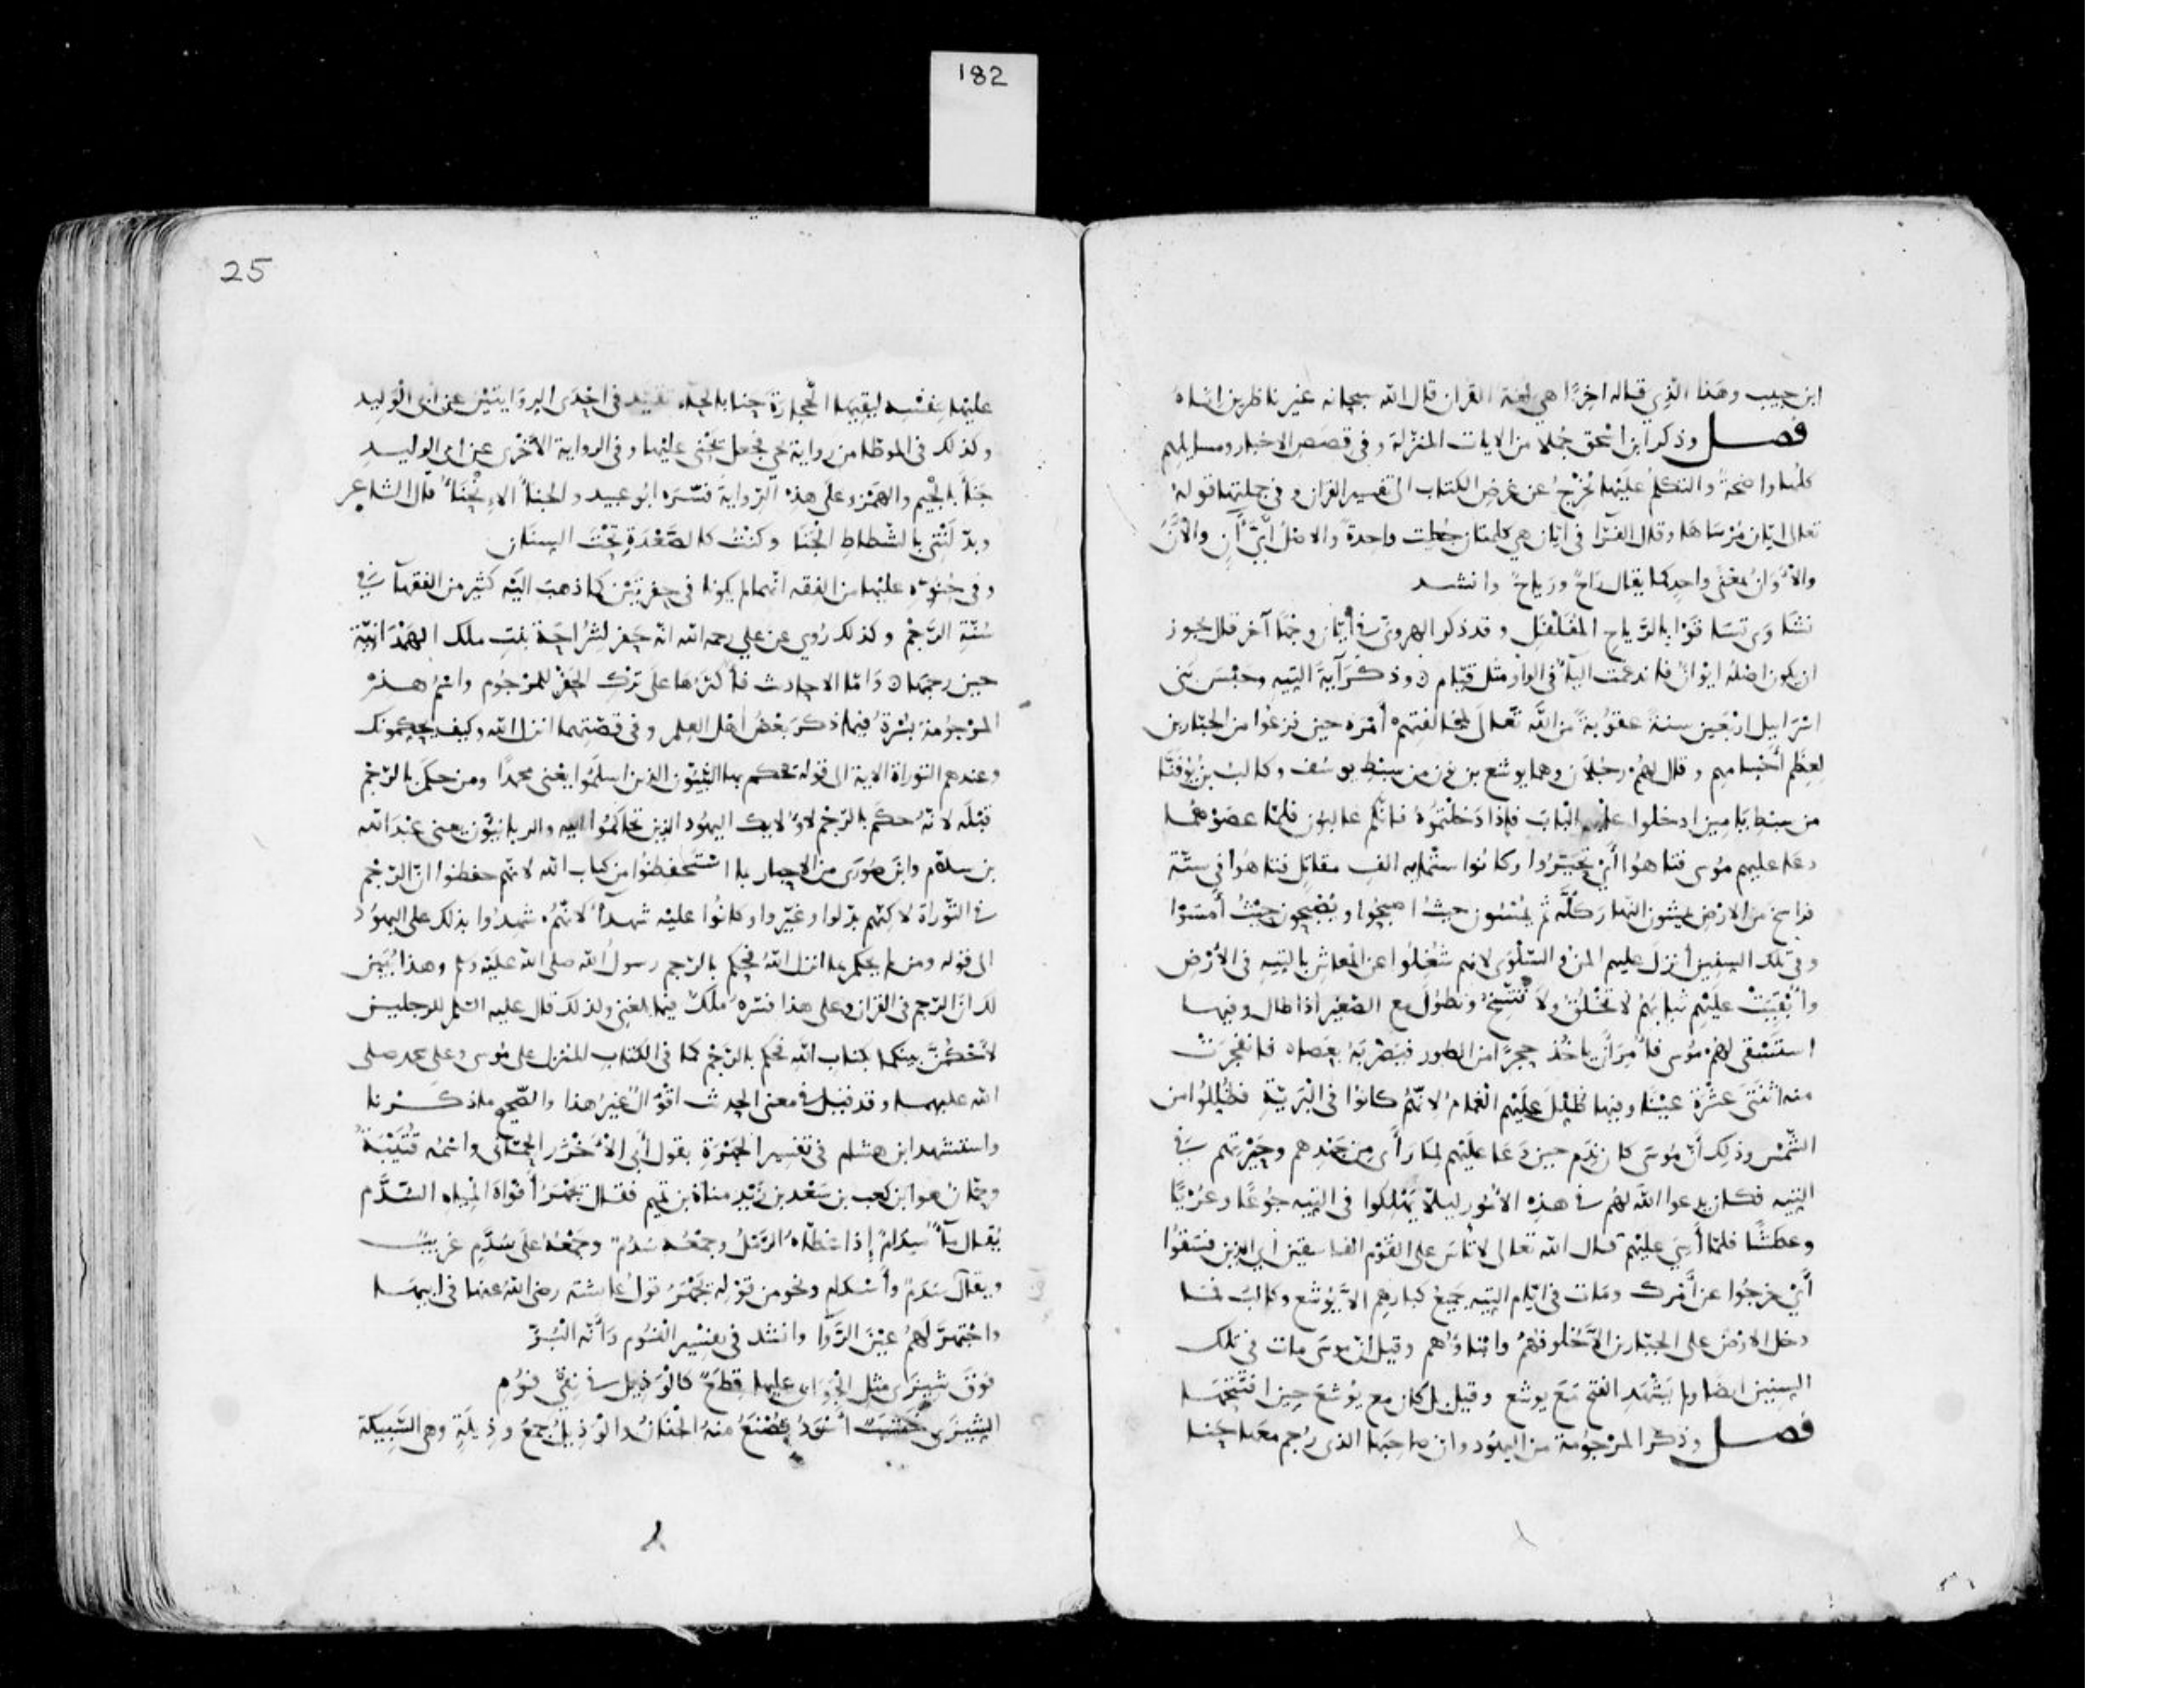 182
ابن حبيب وهذا الذي قاله اخرًا هي لغة القرآن قال الله سبحانه غير ناظرين اناه
فصل وذكر ابن اسحق جملا من الايات المنزلة وفي قصص الاخبار ومسايلهم
كلها واضحة والتكلم عليها يخرج عن غرض الكتاب الى تفسير القرآن وفي جملتها قوله
تعالى ايان مرساها وقال الفرّا في ايان هي كلمتان جعلت واحدة والاصل ايّ آن والآن
والأوان بمعنى واحد كما يقال راح ورياح وانشد
نشاوى تساقوا بالرياح المفلفل وقد ذكر الهروي في أيان وجها آخر قال يجوز
ان يكون اصله ايوان فاندغمت اليا في الواو مثل قيام وذكر آية التيه وحبس بني
اسرايل اربعين سنة عقوبة من الله تعالى لمخالفتهم أمره حين فزعوا من الجبارين
لعظم أجسامهم وقال لهم رجلان وهما يوشع بن نون من سبط يوسف وكالب بن يوفنّا
من سبط يامين ادخلوا عليهم الباب فاذا دخلتموه فانكم غالبون فلما عصوهما
دعا عليهم موسى فتاهوا أي تحيّروا وكانوا ستماية الف مقاتل فتاهوا في ستة
فراسخ من الارض يمشون النهار كله ثم يمسون حيث اصبحوا ويصبحون حيث أمسوا
وفي تلك السنين أنزل عليهم المن والسلوى لانهم شغلوا عن المعاش بالتيه في الأرض
وأبقيت عليهم ثيابهم لا تخلق ولا تتسخ وتطول مع الصغير اذا طال وفيها
استسقى لهم موسى فأمر أن ياخذ حجرًا من الطور فيضربه بعصاه فانفجرت
منه اثنتي عشرة عينا وفيها ظلل عليهم الغمام لانهم كانوا في البرية فظللوا من
الشمس وذلك أنّ موسى كان ندم حين دعا عليهم لما رأى من جهدهم وحيرتهم في
التيه فكان يدعوا الله لهم في هذه الأمور ليلا يهلكوا في التيه جوعًا وعريًا
وعطشًا فلما أسي عليهم قال الله تعالى لا تأس على القوم الفاسقين أي الذين فسقوا
أيْ خرجوا عن أمرك ومات في ايام التيه جميع كبارهم الا يوشع وكالب فما
دخل الارض على الجبارين الا خلوفهم وابناؤهم وقيل ان موسى مات في تلك
السنين ايضا ولم يشهد الفتح مع يوشع وقيل بل كان مع يوشع حين افتتحها
فصل وذكر المرجومة من اليهود وان صاحبها الذي رجم معها حنا
25
عليها بنفسه ليقيها الحجارة حنا بالحاء تقيّد في احدى الروايتين عن ابي الوليد
وكذلك في الموطا من رواية يحيى فجعل يحني عليها وفي الرواية الأخرى عن ابي الوليد
جنأ بالجيم والهمز وعلى هذه الرواية فسّره ابو عبيد والجنأ الانحنا قال الشاعر
وبدّلتني بالشطاط الجنا وكنت كالصعدة تحت السنان
وفي حنوّه عليها من الفقه انهما لم يكونا في حفرتين كما ذهب اليه كثير من الفقها في
سنّة الرجم وكذلك روي عن علي رحمه الله انه حفر لشراحة بنت ملك الهمدانية
حين رجمها وامّا الاحاديث فأكثرها على ترك الحفر للمرجوم واسم هذه
المرجومة بسرة فيما ذكر بعض اهل العلم وفي قصتهما انزل الله وكيف يحكمونك
وعندهم التوراة الاية الى قوله يحكم بها النبيون الذين اسلموا يعني محمدًا ومن حكم بالرجم
قبله لانه حكم بالرجم لاولايك اليهود الذين تحاكموا اليه والربانيون يعني عبد الله
بن سلام وابن صورى من الاحبار بما استحفظوا من كتاب الله لانهم حفظوا انّ الرجم
في التوراة لاكنّهم بدّلوا وغيّروا وكانوا عليه شهدأ لانهم شهدوا بذلك على اليهود
الى قوله ومن لم يحكم بما انزل الله فحكم بالرجم رسول الله صلى الله عليه وسلم وهذا يبين
لك ان الرجم في القرآن وعلى هذا فسّره ملك فيما بلغني ولذلك قال عليه السلم للرجلين
لأحكمنّ بينكما بكتاب الله فحكم بالرجم كما في الكتاب المنزل على موسى وعلى محمد صلى
الله عليهما وقد قيل في معنى الحديث اقوال غير هذا والصحيح ما ذكرنا
واستشهد ابن هشام في تفسير الجهرة بقول أبي الأخزر الحماني واسمه قتيبة
وحمّان هو ابن كعب بن سعد بن زيد مناة بن تميم فقال يجهر أفواه المياه السّدّم
يُقال مآ سدام إذا غطاه الرمل وجمعه سدم وجمعه على سدّم غريب
ويقال سدم وأسدام ونحو من قوله يجهر قول عايشة رضي الله عنها في ابيها
واجتهر لهم عين الرّوا وانشد في تفسير الفوم وأنه البرّ
فوق شيزى مثل الجوابي عليها قطع كالوذيل في نقي فوم
الشيزى خشب أسود يصنع منه الجفان والوذيل جمع وذيلة وهي السّبيكة